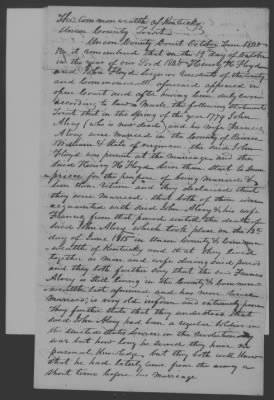 The Commonwealth of Kentucky
Union County Towit
Union County Court October Term 1840
Be it remembered that on the 19 day of October
in the year of our Lord 1840 Henry H. Floyd
and John Floyd Sen resident of the County
and Commonwealth aforesaid appeared in
open Court and after having been duly sworn
according to law Made the following Statement
Towit that in the Spring of the year 1779 John
Alvey (who is now dead) and his wife Frances
Alvey were married in the County of Prince
William & State of Virginia the said John
Floyd was present at the marriage and the
said Henry H. Floyd seen them start to
for the purpose of being married &
seen them return and they declared that
they were married that both of them were
acquainted with said John Alvey & his wife
Frances from that period until the death of
said John Alvey which took place on the
day of June 1815 in Union County & Common
wealth of Kentucky and that they lived
together as man and wife during said period
and they both further say that the said Frances
Alvey is still living in the County & Common
wealth last aforesaid and has never been
married is very old infirm and extremely poor
They further state that they understood that
said John Alvey had been a regular soldier in
the United States Service in the Revolutionary
war but how long he served they have no
personal Knowledge but they both well know
that he had lately come from the army a
short time before his marriage